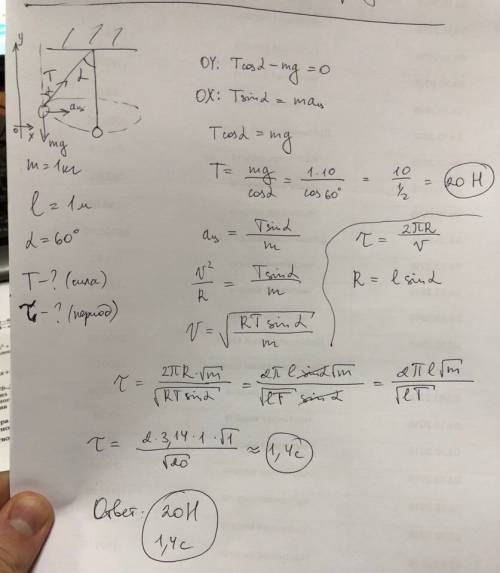 y
T
α
aц
x
0
mg
m = 1кг
l = 1м
α = 60°
T - ? (сила)
τ - ? (период)
OY: Tcosα - mg = 0
OX: Tsinα = maц
Tcosα = mg
T = mg/cosα = 1·10/cos60° = 10/½ = 20 Н
aц = Tsinα/m
v²/R = Tsinα/m
v = √(RTsinα/m)
τ = 2πR/v
R = l sinα
τ = 2πR·√m/√(RTsinα) = 2πl sinα√m/(√(lT) sinα) = 2πl√m/√(lT)
τ = 2·3,14·1·√1/√20 ≈ 1,4с
Ответ: 20Н
1,4с